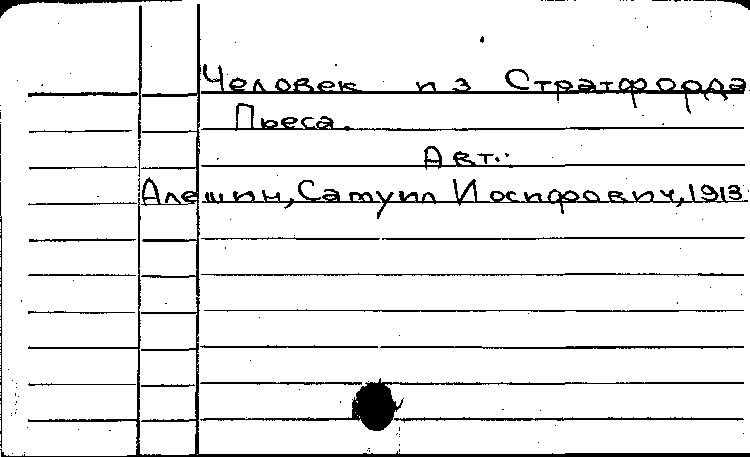 Человек из Стратфорда
Пьеса.
Авт.:
Алешин, Самуил Иосифович, 1913